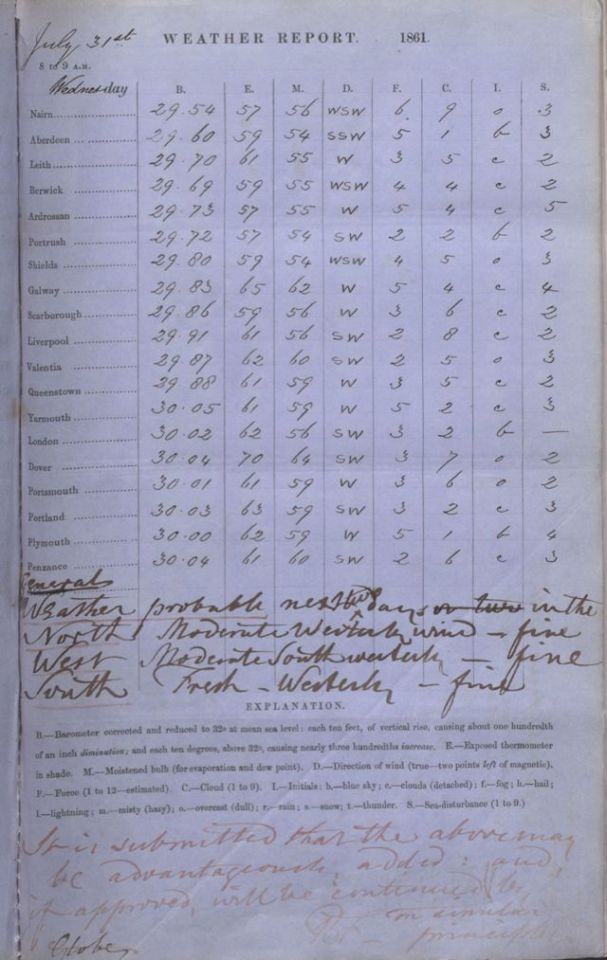 July 31st WEATHER REPORT. 1861.
8 to 9 A.M.
Wednesday B. E. M. D. F. C. I. S.
Nairn 29.54 57 56 WSW 6 9 o 3
Aberdeen 29.60 59 54 SSW 5 1 b 3
Leith 29.70 61 55 W 3 5 c 2
Berwick 29.69 59 55 WSW 4 4 c 2
Ardrossan 29.73 57 55 W 5 4 c 5
Portrush 29.72 57 54 SW 2 2 b 2
Shields 29.80 59 54 WSW 4 5 o 3
Galway 29.83 65 62 W 5 4 c 4
Scarborough 29.86 59 56 W 3 6 c 2
Liverpool 29.91 61 56 SW 2 8 c 2
Valentia 29.87 62 60 SW 2 5 o 3
Queenstown 29.88 61 59 W 3 5 c 2
Yarmouth 30.05 61 59 W 5 2 c 3
London 30.02 62 56 SW 3 2 b —
Dover 30.04 70 64 SW 3 7 o 2
Portsmouth 30.01 61 59 W 3 6 o 2
Portland 30.03 63 59 SW 3 2 c 3
Plymouth 30.00 62 59 W 5 1 b 4
Penzance 30.04 61 60 SW 2 6 c 3
General
Weather probable next two days or two in the
North Moderate Westerly wind – fine
West Moderate South westerly – fine
South Fresh – Westerly – fine
EXPLANATION.
B.—Barometer corrected and reduced to 32° at mean sea level: each ten feet, of vertical rise, causing about one hundredth
of an inch diminution; and each ten degrees, above 32°, causing nearly three hundredths increase. E.—Exposed thermometer
in shade. M.—Moistened bulb (for evaporation and dew point). D.—Direction of wind (true—two points left of magnetic).
F.—Force (1 to 12—estimated). C.—Cloud (1 to 9). I.—Initials: b.—blue sky; c.—clouds (detached); f.—fog; h.—hail;
l.—lightning; m.—misty (hazy); o.—overcast (dull); r.—rain; s.—snow; t.—thunder. S.—Sea-disturbance (1 to 9.)
It is submitted that the above may
be advantageously added: and,
if approved, will be continued by
on similar
principles
Globe